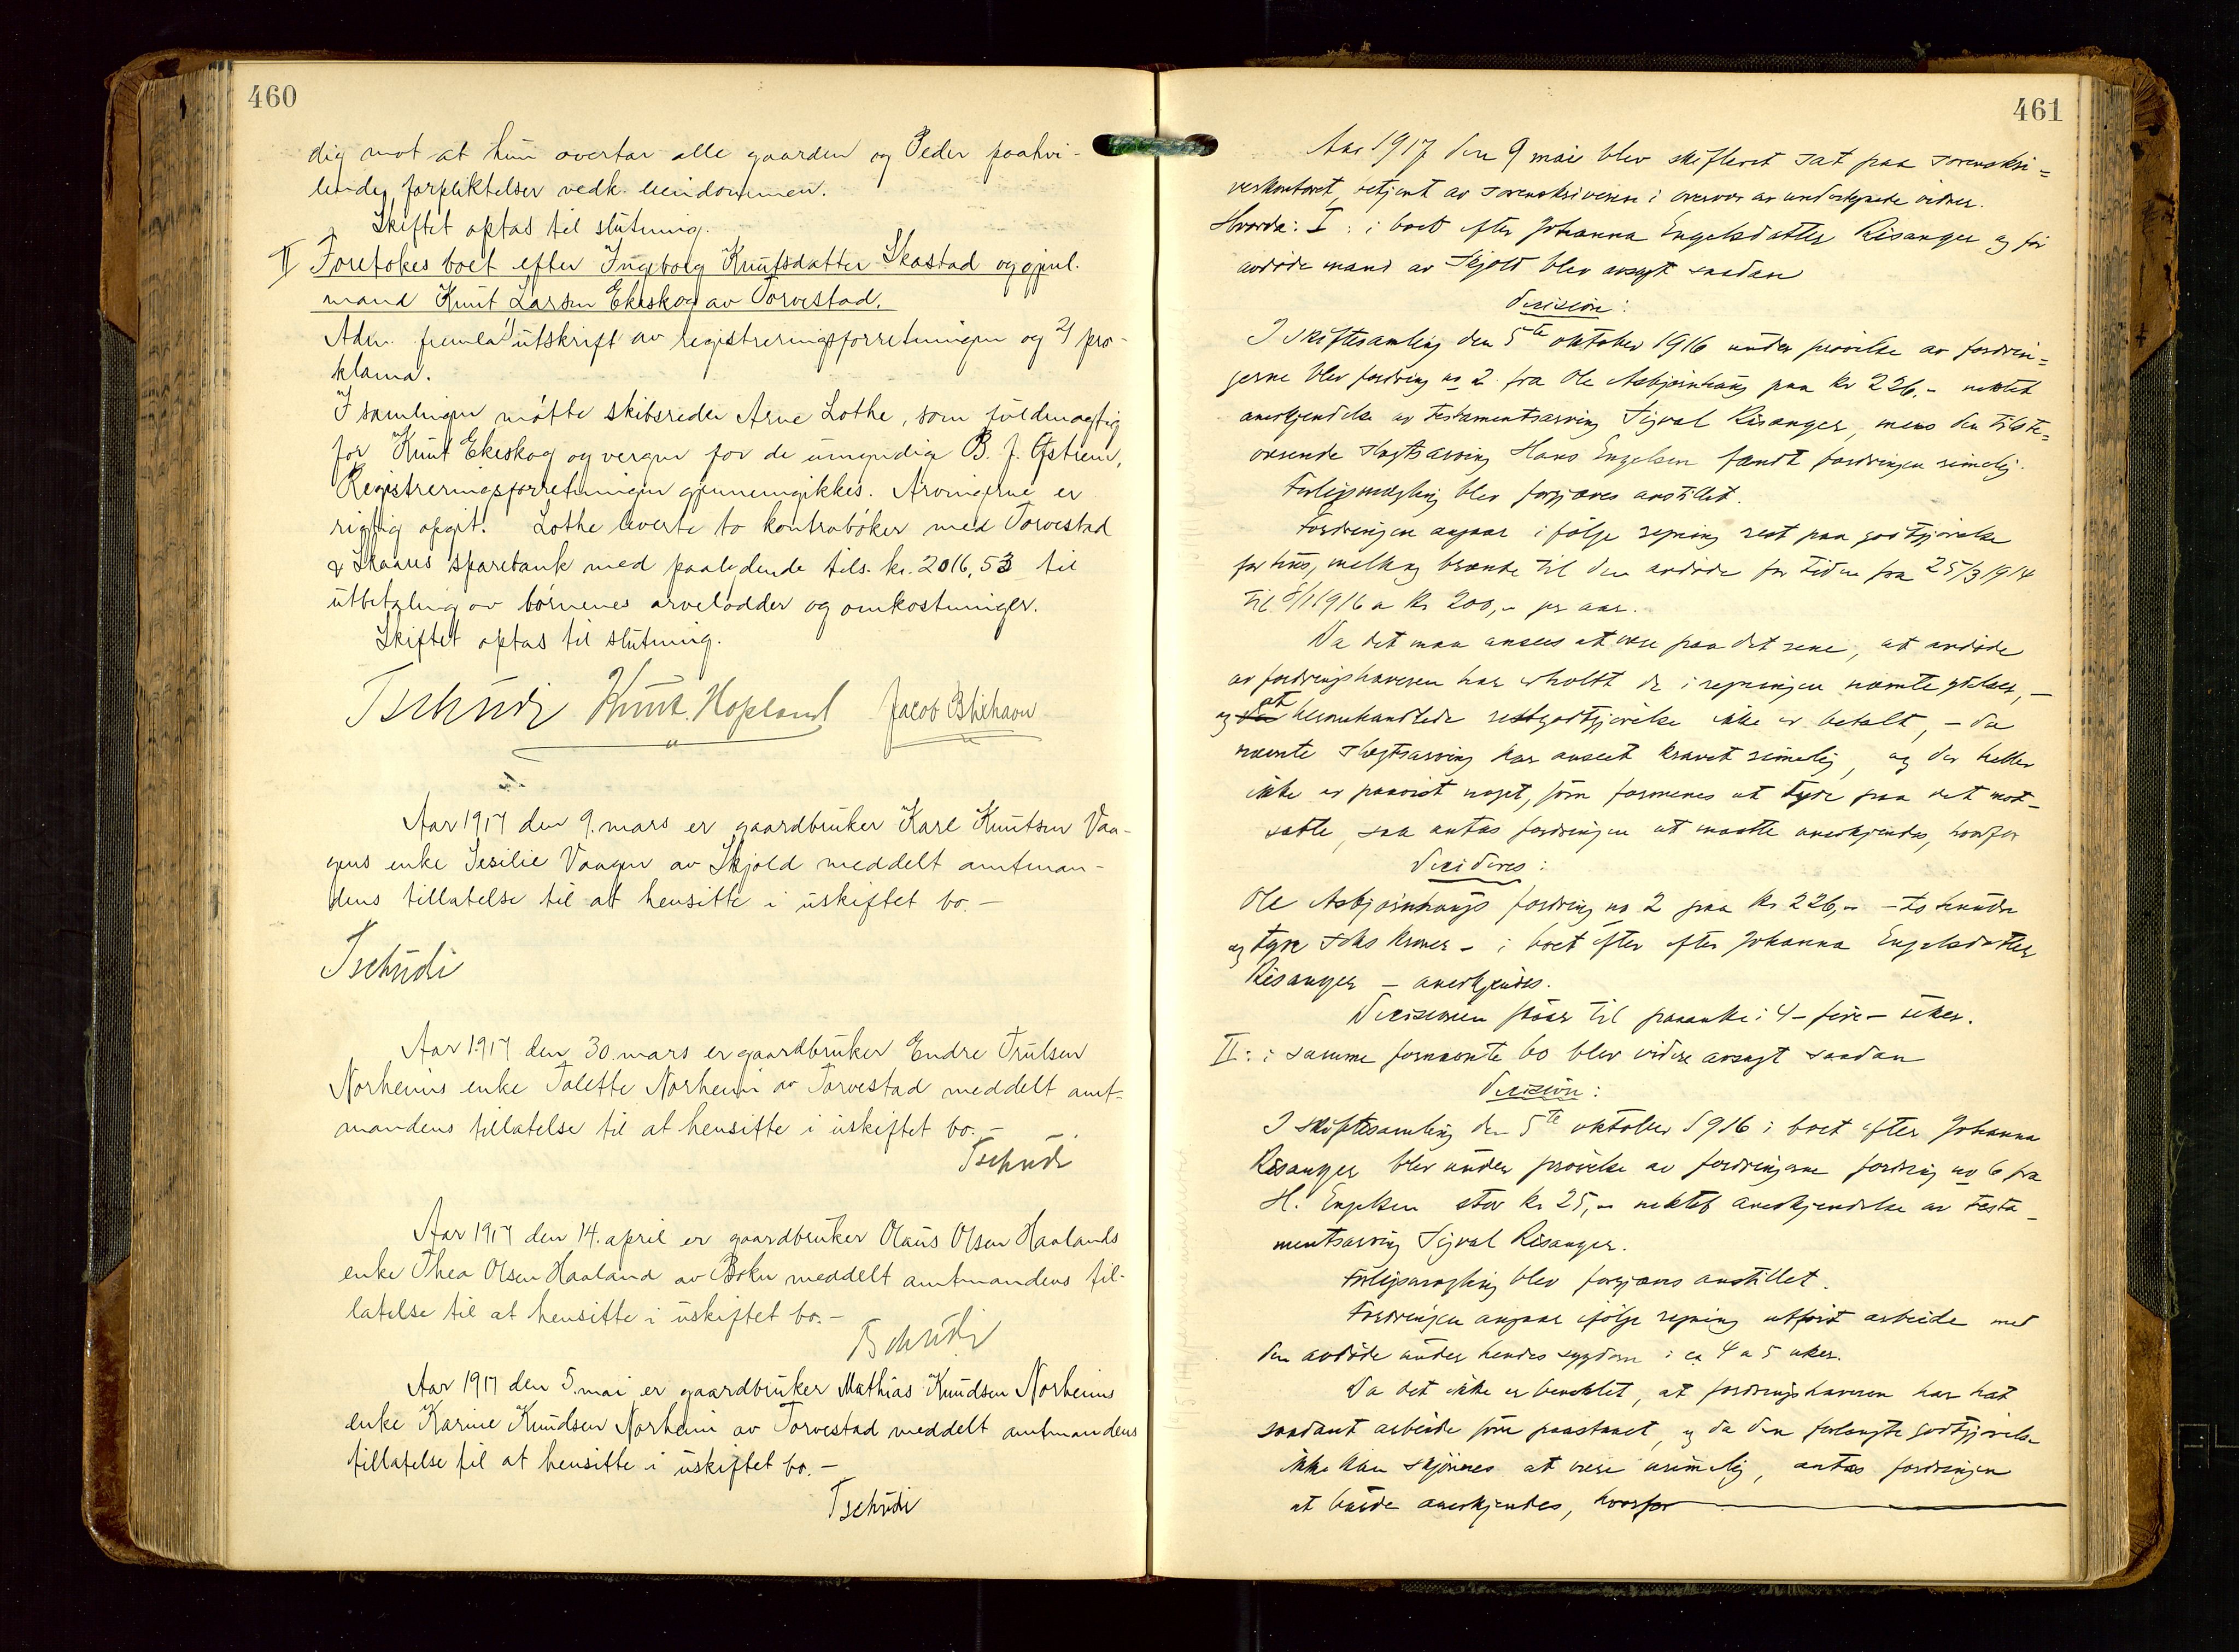 460
dig mot at hun overtar alle gaarden og Peder paahvi-
lende forpliktelser vedk. eiendommen.
Skiftet optas til slutning.
II Foretokes boet efter Ingeborg Knutsdatter Skastad og gjenl.
mand Knut Larsen Ekeskog av Torvestad.
Adm. fremla utskrift av registreringsforretningen og pro-
klama.
I samlingen møtte skibsreder Arne Lothe, som fuldmægtig
for Knut Ekeskog og vergen for de umyndige B. J. Østrem,
Registreringsforretningen gjennemgikkes. Arvingerne er
rigtig opgit. Lothe leverte to kontrabøker med Torvestad
& Skaares sparebank med paalydende tils. kr. 2016,53 til
utbetaling av børnenes arvelodder og omkostninger.
Skiftet optas til slutning.
Tschudi Knut. Hopland Jacob Blikhavn
Aar 1917 den 9. mars er gaardbruker Karl Knutsen Vaa-
gens enke Sesilie Vaagen av Skjold meddelt amtman-
dens tillatelse til at hensitte i uskiftet bo.-
Tschudi
Aar 1917 den 30. mars er gaardbruker Endre Trulsen
Norheims enke Talette Norheim av Torvestad meddelt amt-
mandens tillatelse til at hensitte i uskiftet bo.-
Tschudi
Aar 1917 den 14. april er gaardbruker Olaus Olsen Haalands
enke Thea Olsen Haaland av Bokn meddelt amtmandens til-
latelse til at hensitte i uskiftet bo.-
Tschudi
Aar 1917 den 5. mai er gaardbruker Mathias Knudsen Norheims
enke Karine Knudsen Norheim av Torvestad meddelt amtmandens
tillatelse til at hensitte i uskiftet bo.-
Tschudi
461
Aar 1917 den 9 mai blev skifteret sat paa sorenskri=
verkontoret, betjent av sorenskriveren i overvær av undertegnede vidner.
Hvorda: I: i boet efter Johanna Engelsdatter Risanger og før
avdøde mand av Skjold blev avsagt saadan
Decision:
I skiftesamling den 5te oktober 1916 under prøvelse av fordrin=
gerne blev fordring no 2 fra Ole Asbjørnhaug paa Kr 226.- nektet
anerkjendelse av testamentsarving Sigval Risanger, mens den tilste=
værende slegtsarving Hans Engelsen fandt fordringen rimelig.
Forligsmægling blev forgjæves anstillet.
Fordringen angaar i følge regning rest paa godtgjørelse
for hus, melk og brænde til den avdøde for tiden fra 25/3 1914
til 5/1 1916 a Kr 200,- pr aar.
Da det maa ansees at være paa det rene, at avdøde
av fordringshaveren har erholdt de i regningen nævnte ytelser,-
og at heromhandlede restgodtgjørelse ikke er betalt,- da
nævnte slegtsarving har anseet kravet rimelig, og der heller
ikke er paavist noget, som formenes at tyde paa det mot-
satte, saa antas fordringen at maatte anerkjendes, hvorfor
decideres:
Ole Asbjørnhaugs fordring no 2 paa Kr 226,- - to hundre
og tyve seks kroner - i boet efter efter Johanna Engelsdatter
Risanger - anerkjendes.
Decisionen staar til paaanke i 4 - fire - uker.
II: i samme fornævnte bo blev videre avsagt saadan
Decision:
I skiftesamling den 5te oktober 1916 i boet efter Johanna
Risanger blev under prøvelse av fordringerne fordring no 6 fra
H. Engelsen stor kr 25,- nektet anerkjendelse av testa-
mentsarving Sigval Risanger.
Forligsmægling blev forgjæves anstillet.
Fordringen angaar ifølge regning utført arbeide med
den avdøde under hendes sygdom i ca 4 a 5 uker.
Da det ikke er benektet, at fordringshaveren har hat
saadant arbeide som paastaaet, og da den forlangte godtgjørelse
ikke kan skjønnes at være urimelig, antas fordringen
at burde anerkjendes, hvorfor